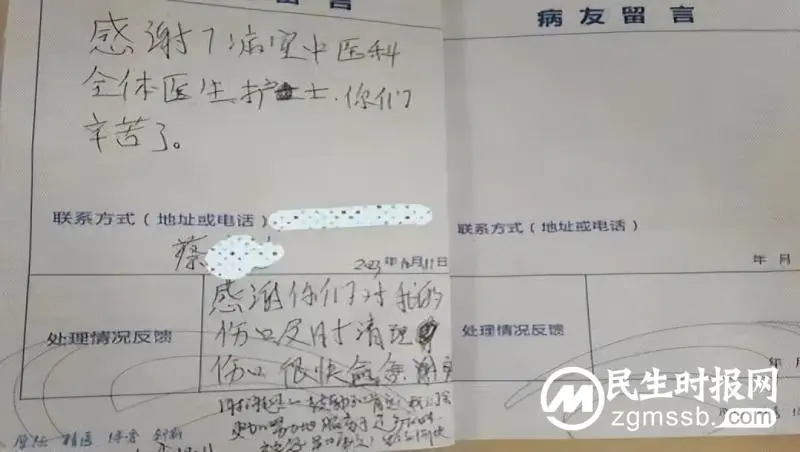 留言
感谢7病室中医科
全体医生.护士.你们
辛苦了。
联系方式（地址或电话）
蔡
2023年 月11日
处理情况反馈
感谢你们对我的
伤口及时清理
伤口很快愈
鼓励和肯定，我们会
更加努力地服务于
病友留言
联系方式（地址或电话）
年 月
处理情况反馈
年 月
民生时报网
zgmssb.com